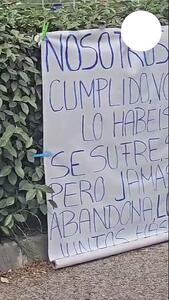 NOSOTROS
CUMPLIDO, VO
LO HABEIS
SE SUFRE, S
PERO JAMAS
ABANDONA, L
JUNTAS HAS